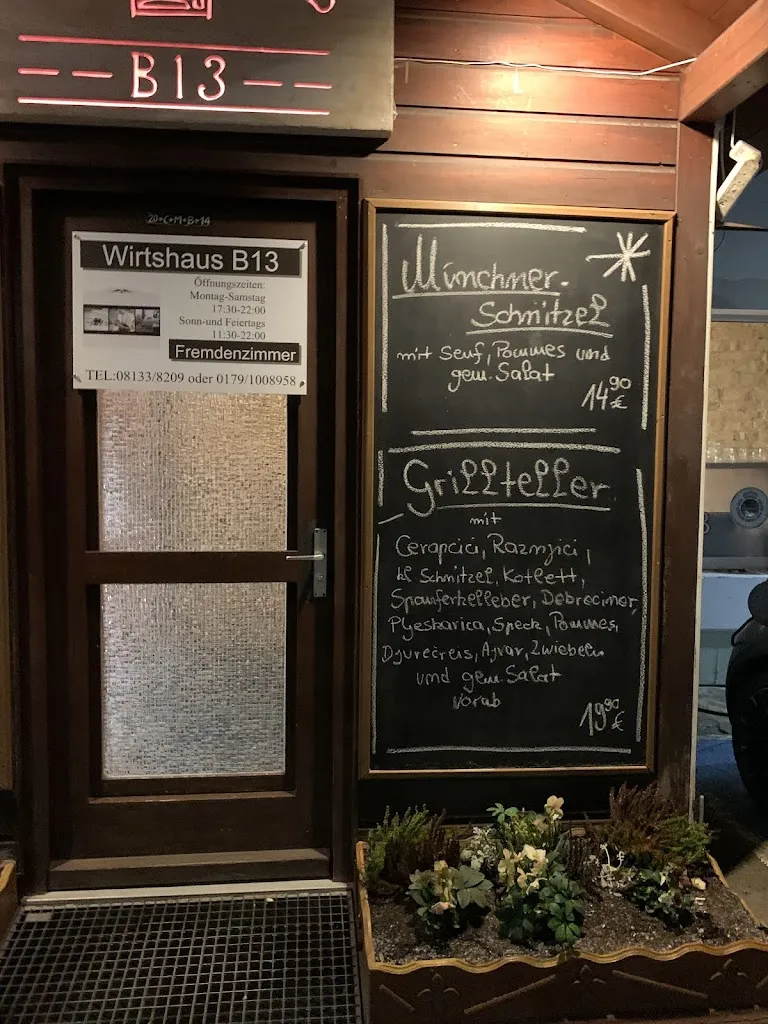 B13
20*C+M+B+14
Wirtshaus B13
Öffnungszeiten:
Montag-Samstag
17:30-22:00
Sonn-und Feiertags
11:30-22:00
Fremdenzimmer
TEL:08133/8209 oder 0179/1008958
Münchner-
Schnitzel
mit Senf, Pommes und
gem. Salat
14,90 €
Grillteller
mit
Cerapcici, Raznjici,
kl Schnitzel, Kotlett,
Spanferkelleber, Debreciner,
Pljeskavica, Speck, Pommes,
Djuvecreis, Ajvar, Zwiebeln
und gem. Salat
Vorab
19,90 €